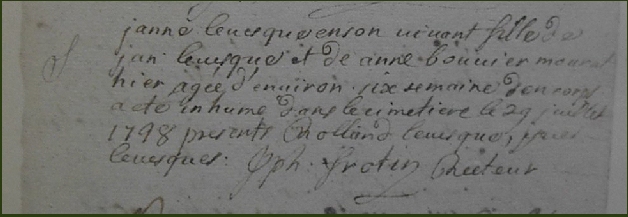 janne levesque en son vivant fille de
jan levesque et de anne bouvier mourut
hier agée d'environ six semaine son corps
a eté inhumé dans le cimetiere le 29 juillet
1748 presents Rolland levesque,
levesques: Jph. Frotin Recteur